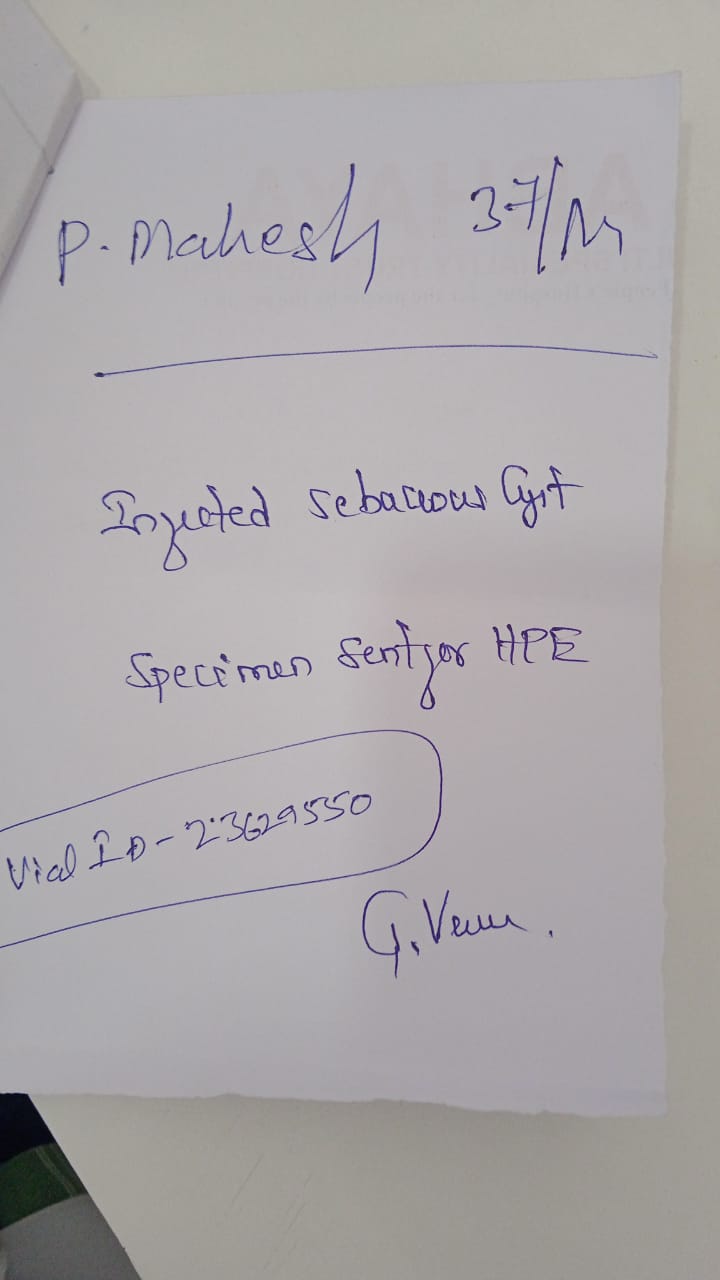 P. Mahesh 37/M
Infected sebaceous Cyst
Specimen sent for HPE
Vial ID - 23629550
G. Venu.